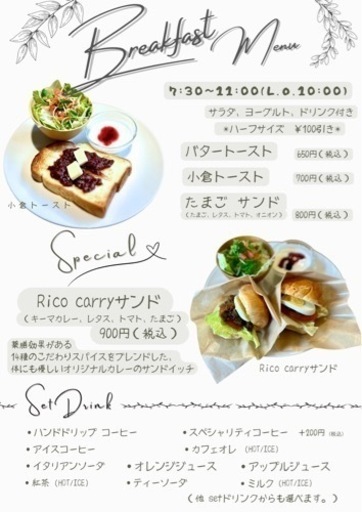 Breakfast Menu
7:30〜11:00(L.o.10:00)
サラダ、ヨーグルト、ドリンク付き
*ハーフサイズ ¥100引き*
バタートースト 650円(税込)
小倉トースト 700円(税込)
たまご サンド 800円(税込)
(たまご、レタス、トマト、オニオン)
小倉トースト
Special
Rico carryサンド
(キーマカレー、レタス、トマト、たまご)
900円(税込)
薬膳効果がある
14種のこだわりスパイスをブレンドした、
体にも優しいオリジナルカレーのサンドイッチ
Rico carryサンド
Set Drink
・ハンドドリップ コーヒー ・スペシャリティコーヒー +200円(税込)
・アイスコーヒー ・カフェオレ (HOT/ICE)
・イタリアンソーダ ・オレンジジュース ・アップルジュース
・紅茶(HOT/ICE) ・ティーソーダ ・ミルク(HOT/ICE)
(他 setドリンクからも選べます。)